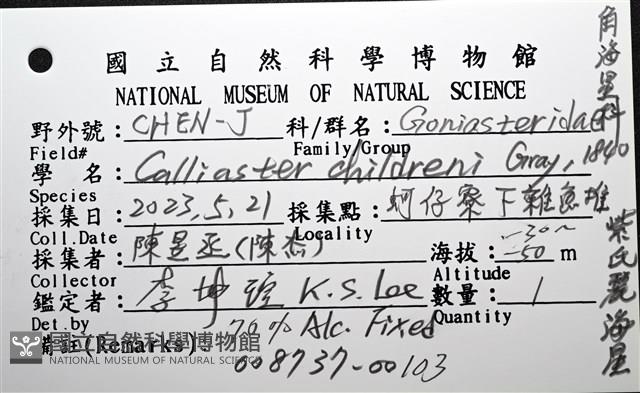 國立自然科學博物館
NATIONAL MUSEUM OF NATURAL SCIENCE
野外號：CHEN-J 科/群名：Goniasteridae
Field# Family/Group
學 名：Calliaster childreni Gray, 1840
Species
採集日：2023,5,21 採集點：蚵仔寮下雜魚堆
Coll.Date Locality
採集者：陳昱丞(陳杰) 海拔：-30~-50 m
Collector Altitude
鑑定者：李坤瑄 K.S. Lee 數量：1
Det.by Quantity
備註(Remarks): 70% Alc. Fixed
008737-00103
角海星科
柴氏麗海星
國立自然科學博物館
NATIONAL MUSEUM OF NATURAL SCIENCE